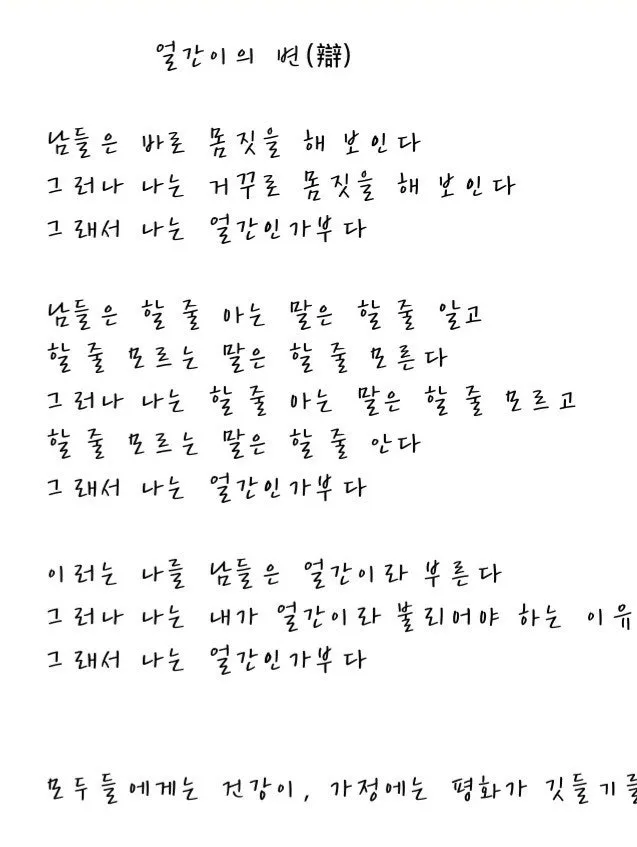 얼간이의 변(辯)
남들은 바로 몸짓을 해 보인다
그러나 나는 거꾸로 몸짓을 해 보인다
그래서 나는 얼간인가부다
남들은 할 줄 아는 말은 할 줄 알고
할 줄 모르는 말은 할 줄 모른다
그러나 나는 할 줄 아는 말은 할 줄 모르고
할 줄 모르는 말은 할 줄 안다
그래서 나는 얼간인가부다
이러는 나를 남들은 얼간이라 부른다
그러나 나는 내가 얼간이라 불리어야 하는 이유
그래서 나는 얼간인가부다
모두들에게는 건강이, 가정에는 평화가 깃들기를